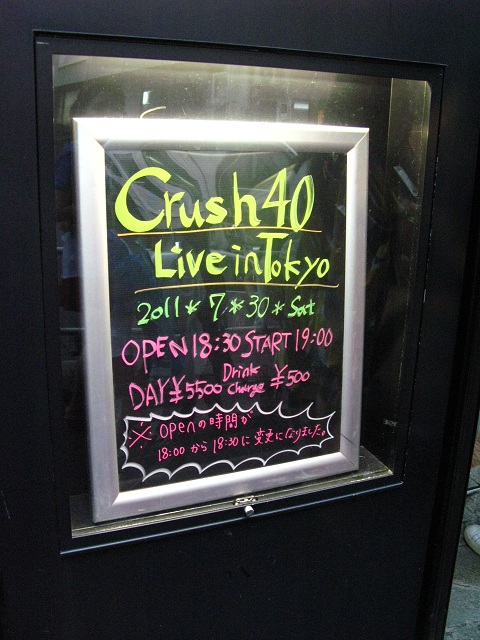 Crush 40
Live in Tokyo
2011*7*30*Sat
OPEN 18:30 START 19:00
DAY ¥5500 Drink Charge ¥500
※ openの時間が
18:00 から 18:30 に 変更になりました。